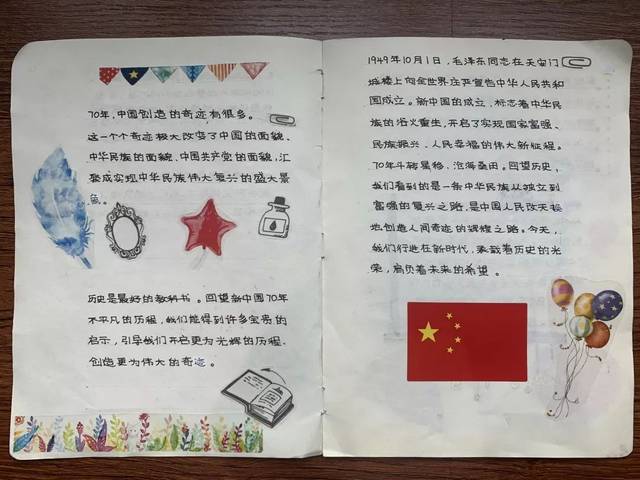 70年,中国创造的奇迹有很多。
这一个个奇迹极大改变了中国的面貌、
中华民族的面貌、中国共产党的面貌,汇
聚成实现中华民族伟大复兴的盛大景
象。
历史是最好的教科书。回望新中国70年
不平凡的历程,我们能得到许多宝贵的
启示,引导我们开启更为光辉的历程、
创造更为伟大的奇迹。
1949年10月1日,毛泽东同志在天安门
城楼上向全世界庄严宣告中华人民共和
国成立。新中国的成立,标志着中华民
族的浴火重生,开启了实现国家富强、
民族振兴、人民幸福的伟大新征程。
70年斗转星移、沧海桑田。回望历史,
我们看到的是一条中华民族从独立到
富强的复兴之路,是中国人民改天换
地创造人间奇迹的辉煌之路。今天,
我们行进在新时代,承载着历史的光
荣,肩负着未来的希望。